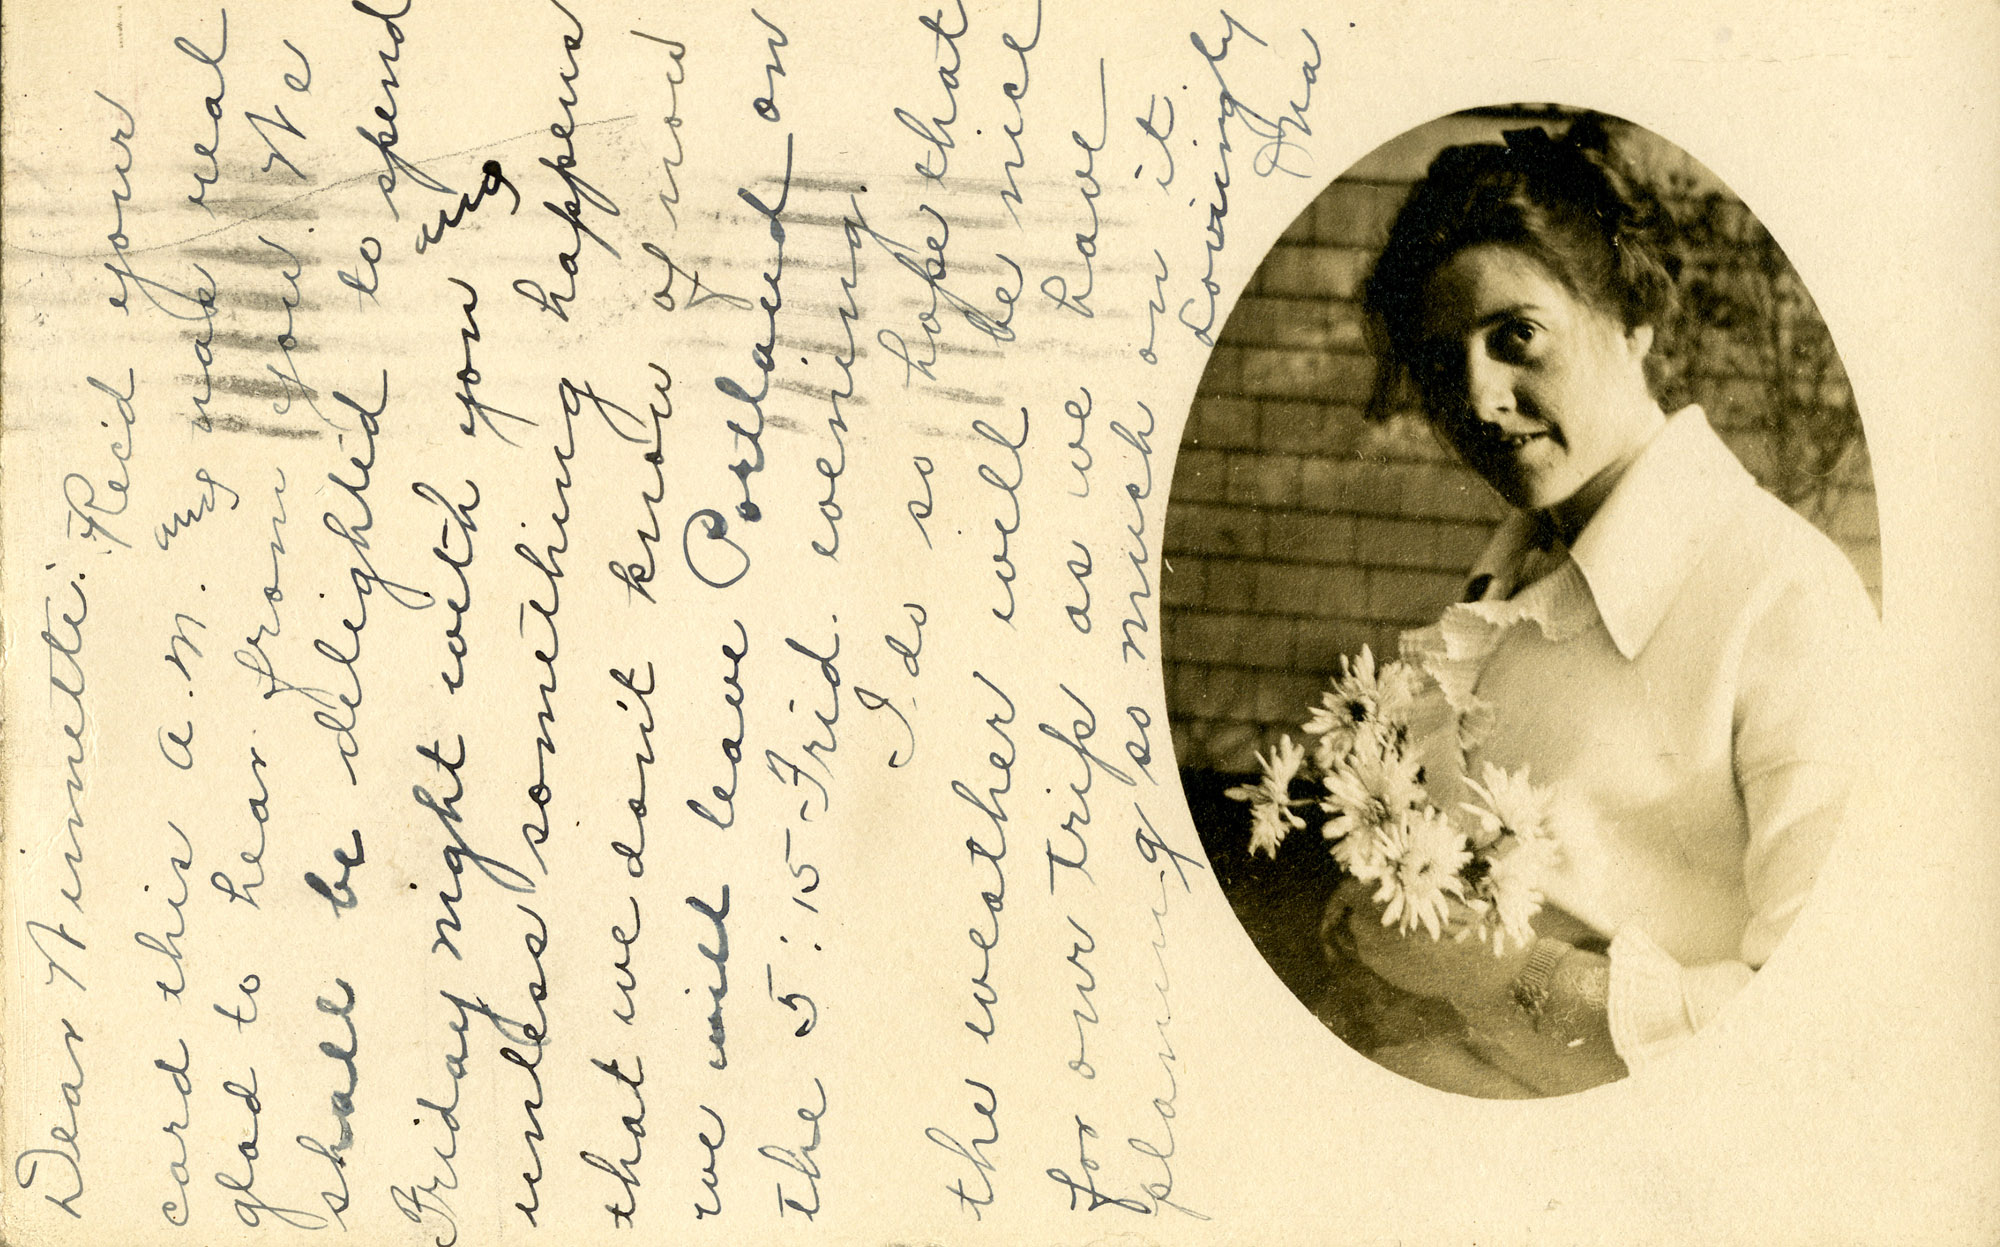 Dear Winnette: Rec'd your
card this A.M. and was real
glad to hear from you. We
shall be delighted to spend
Friday night with you and
unless something happens
that we don't know of now
we will leave Portland on
the 5:15 - Frid. evening.
I do so hope that
the weather will be nice
for our trip as we have
planing so much on it.
Lovingly
Ina